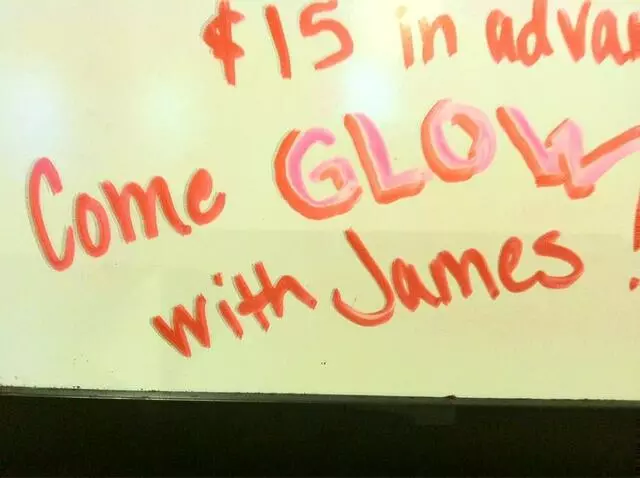 $15 in advan
Come GLOW
with James!